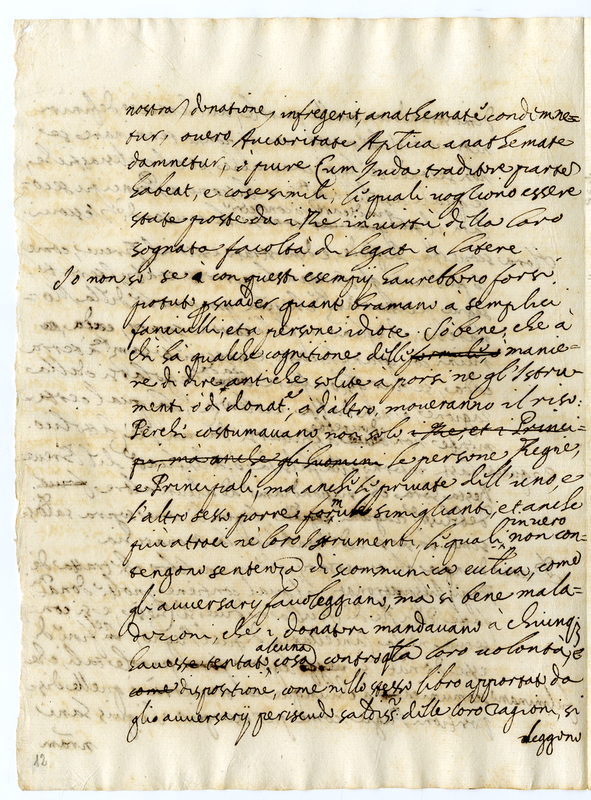 nostra donatione, infregerit, anathemate condemne=
tur, overo Auctoritate Aplica anathemate
damnetur, ò pure Cum Juda traditore partem
habeat, e cose simili, li quali vogliono essere
state poste da i Rè in virtù della loro
sognata facoltà di legati a latere.
Io non sò se con questi esempij haurebbono forsi
potuto psuader quanto bramano a semplici
fanciulli, et a persone idiote. Sò bene, che à
chi hà qualche cognitione delle formule manie=
re di dire antiche solite a porsi ne gl'Istru
menti ò di donat.e, ò d'altro, moveranno il riso:
Perche costumavano non solo i Rè, et i Princi=
pi, ma anche gli huomini le persone Regie,
e Principali, ma anche le private dell'uno, e
l'altro sesso porre formule simiglianti, et anche
più atroci ne loro Istrumenti, li quali invero non con=
tengono sentenza di scommunica ecclica, come
gli avversarij favoleggiano, ma si bene mala=
dizioni, che i donatori mandavano à chiunq;
havesse tentato alcuna cosa contro la loro volontà, e
come dispositione, come nello stesso libro apportato da
gli avversarij, per iscudo delle loro ragioni, si
leggono
12